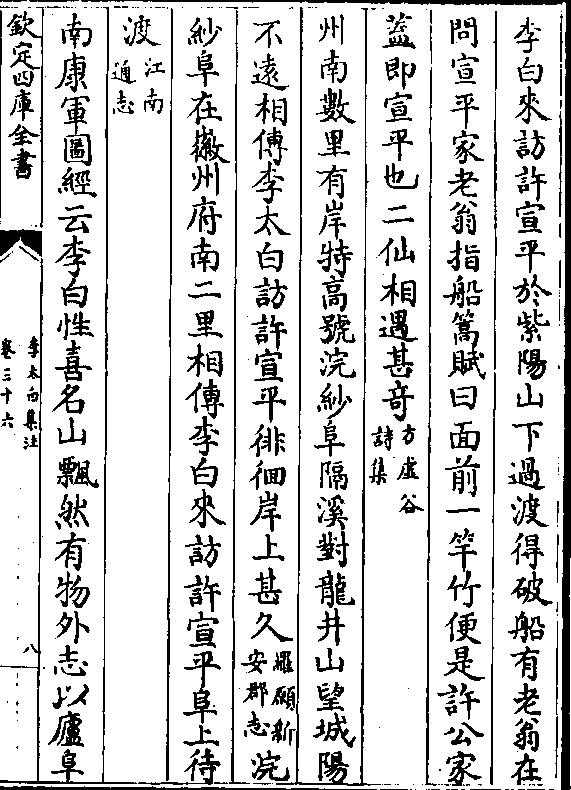 李白來訪許宣平於紫陽山下過渡得破船有老翁在
問宣平家老翁指船篙賦曰面前一竿竹便是許公家
葢即宣平也二仙相遇甚竒方虛谷詩集
州南數里有岸特高號浣紗阜隔溪對龍井山望城陽
不逺相傳李太白訪許宣平徘徊岸上甚久羅願新安郡志浣
紗阜在徽州府南二里相傳李白來訪許宣平阜上待
渡江南通志
南康軍圖經云李白性喜名山飄然有物外志以廬阜
欽定四庫全書
李太白集注
卷三十六
八